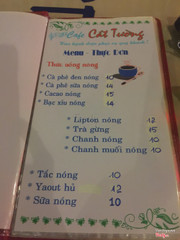 Cafe Cát Tường
Menu - Thực Đơn
Thức uống nóng
* Cà phê đen nóng 10
* Cà phê sữa nóng 14
* Cacao nóng 15
* Bạc xỉu nóng 14
* Lipton nóng 12
* Trà gừng 15
* Chanh nóng 10
* Chanh muối nóng 10
* Tắc nóng 10
* Yaout hủ 12
* Sữa nóng 10